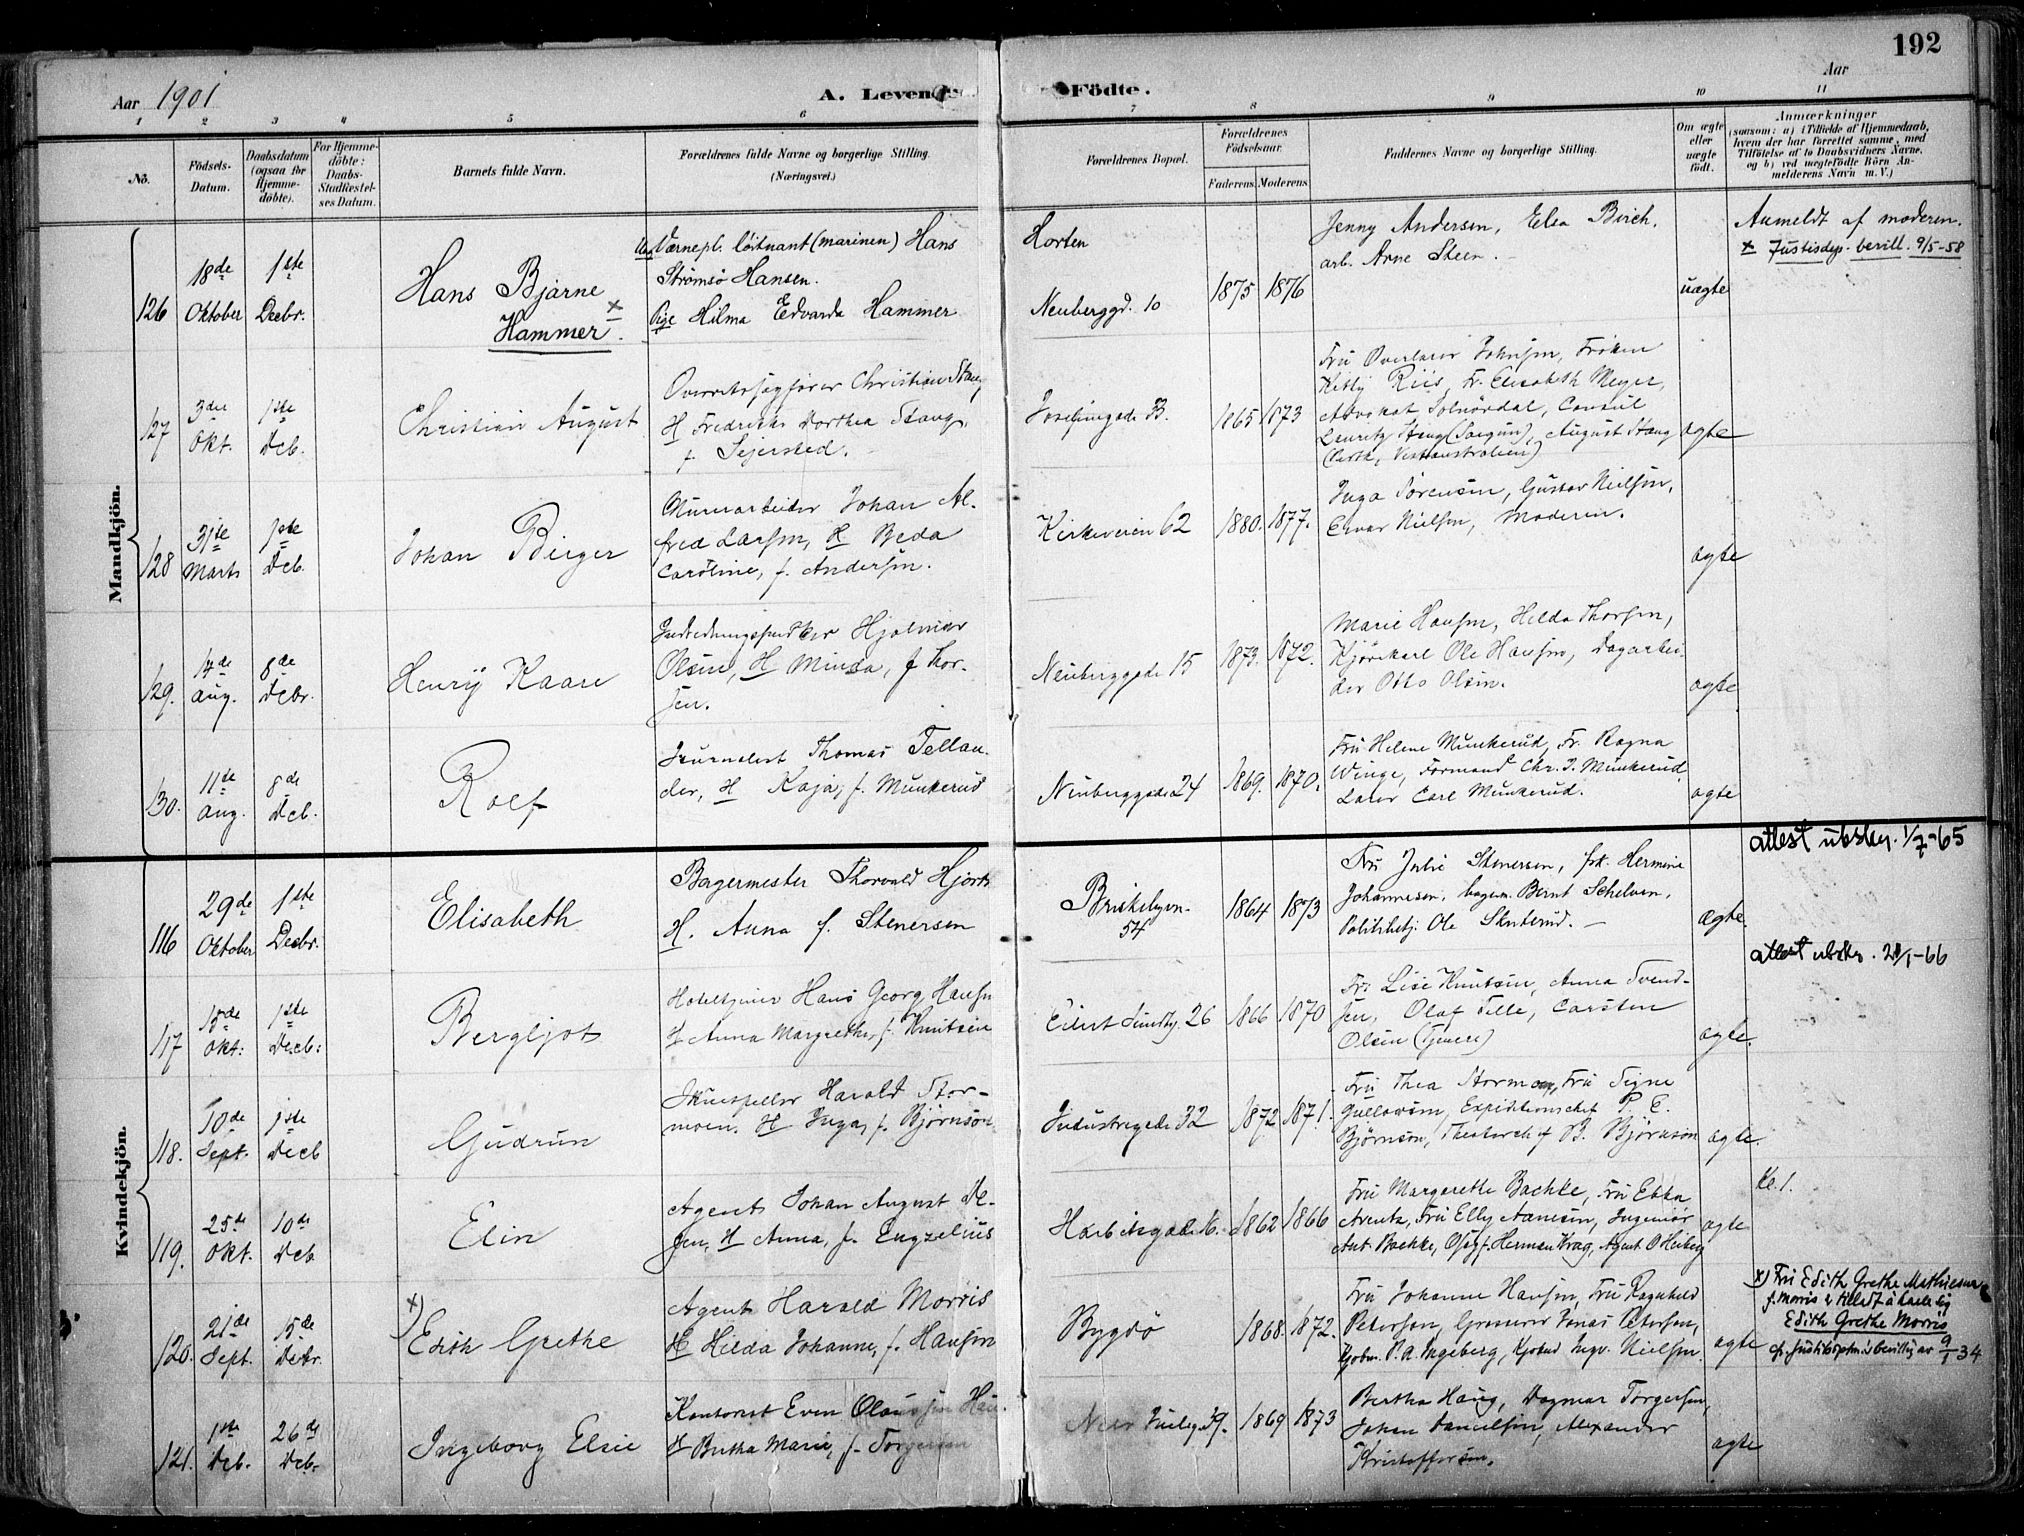 192
Aar 1901
A. Levende Födte.
Aar
1 2 3 4 5 6 7 8 9 10 11
No.
Födsels-Datum.
Daabsdatum (ogsaa for Hjemme-döbte).
For Hjemme-döbte: Daabs-Stadfæstel-ses Datum.
Barnets fulde Navn.
Forældrenes fulde Navne og borgerlige Stilling.
(Næringsvei.)
Forældrenes Bopæl.
Forældrenes Födselsaar.
Faderens. Moderens.
Faddernes Navne og borgerlige Stilling.
Om ægte eller uægte födt.
Anmærkninger
(saasom: a) i Tilfælde af Hjemmedaab,
hvem der har forrettet samme, med
Tilföielse af to Daabsvidners Navne,
og b) ved uægtefödte Börn An-
melderens Navn m. V.)
Mandkjön.
126 18de Oktober 1ste Decbr.
Hans Bjarne x
Hammer.
Værnepl. löitnant (marinen) Hans
Strømsö Hansen.
Pige Hilma Edvarda Hammer
Horten
Neuberggd. 10
1875 1876
Jenny Andersen, Elsa Birch.
arb. Arne Steen. -
uægte
Anmeldt af moderen.
x Justisdep. bevill. 9/5-58
127 3die Okt. 1ste Dcb.
Christian August
Overretssagförer Christian Stang
H Fredrikke Dorthea Stang,
f. Sejersted.
Josefinegade
1865 1873
Fru Overlærer Johnsen, Fröken
Kitty Riis, Fr. Elisabeth Meyer,
Advokat Solnördal, Consul
Lauritz Stang (Saigun), August Stang
(Perth, Vestaustralien)
ægte
128 31te Marts 1ste Dcb.
Johan Birger
Murerarbeider Johan Al-
fred Larsen, H Beda
Caroline, f. Andersen.
Kirkeveien 62
1880. 1877.
Inga Sörensen, Gustav Nielsen,
Nielsen, Moderen.
ægte
129. 14de Aug. 8de Dcbr.
Henry Kaare
Hjalmar
Olsen, H Minda, f. Thor-
sen.
Neuberggade 15
1873. 1872.
Marie Hansen, Hilda Thorsen,
Kjörekarl Ole Hansen, Dagarbei-
der Otto Olsen.
ægte
130. 11de Aug. 8de Dcb.
Rolf
Journalist Thomas Tellan-
der, H Kaja, f. Munkerud
Neuberggade 24
1869. 1870.
Fru Helene Munkerud, Fr. Ragna
Winge, Formand Chr. J. Munkerud,
Lærer Carl Munkerud.
ægte
Kvindekjön.
116 29de Oktober 1ste Decbr.
Elisabeth
Bagermester Thorvald Hjorth
H. Anna f. Stenersen
Briskebyvn.
54
1864 1873
Fru Julie Stenersen, frk. Hermine
Johannesen, bagerm. Bernt Schelven,
Politibetj. Ole Skuterud. -
ægte.
attest utstey. 1/7-65
117 15de Okt: 1ste Decb:
Bergljot
Hoteltjener Hans Georg Hansen
H Anna Margrethe, f. Knutsen
Eilert Sundtg. 26
1866 1870
Fru Lise Knutsen, Anna Svend-
sen, Olaf Tille, Carsten
Olsen (Tjenere)
ægte.
118. 10de Sept. 1ste Decb
Gudrun
Skuespiller Harald Stor-
moen. H Inga, f. Björnson
Industrigade 32
1872 1871.
Fru Thea Stormoen, Fru Signe
Gullowsen, Expeditionschef P. E.
Björnson, Theaterchef B. Björnson
ægte.
119. 25de Okt. 10de Dcb
Elin
Agent Johan August De-
gen, H Anna, f. Engzelius
Harbitzgade
1862 1866
Fru Margarethe Backke, Fru Ebba
Arentz, Fru Elly Aanesen, Ingeniör
Ant. Backke, Osagf. Herman Krag, Agent O Heiberg
ægte
Kl. 1.
120. 21de Sept. 15de Decbr.
x) Edith Grethe
Agent Harald Morris
H Hilda Johanne, f. Hansen
Bygdö
1868. 1872.
Fru Johanne Hansen, Fru Ragnhild
Petersen, Grosserer Jonas Petersen,
Kjöbm. P. A. Ingeberg, Kjöbmd Ingv. Nielsen.
ægte
x) Fru Edith Grethe Mathiesen
f. Morris er tilladt å kalle sig
Edith Grethe Morris
9/1 34
121. 1ste Dcb. 26de Dcbr
Ingeborg Elsie
Kontorist Even Olaussen Hau-
H Berthea Marie, f. Torgersen
1869 1873
Bertha Haug, Dagmar Torgersen,
Johan Danielsen, Alexander
Kristoffersen.
ægte